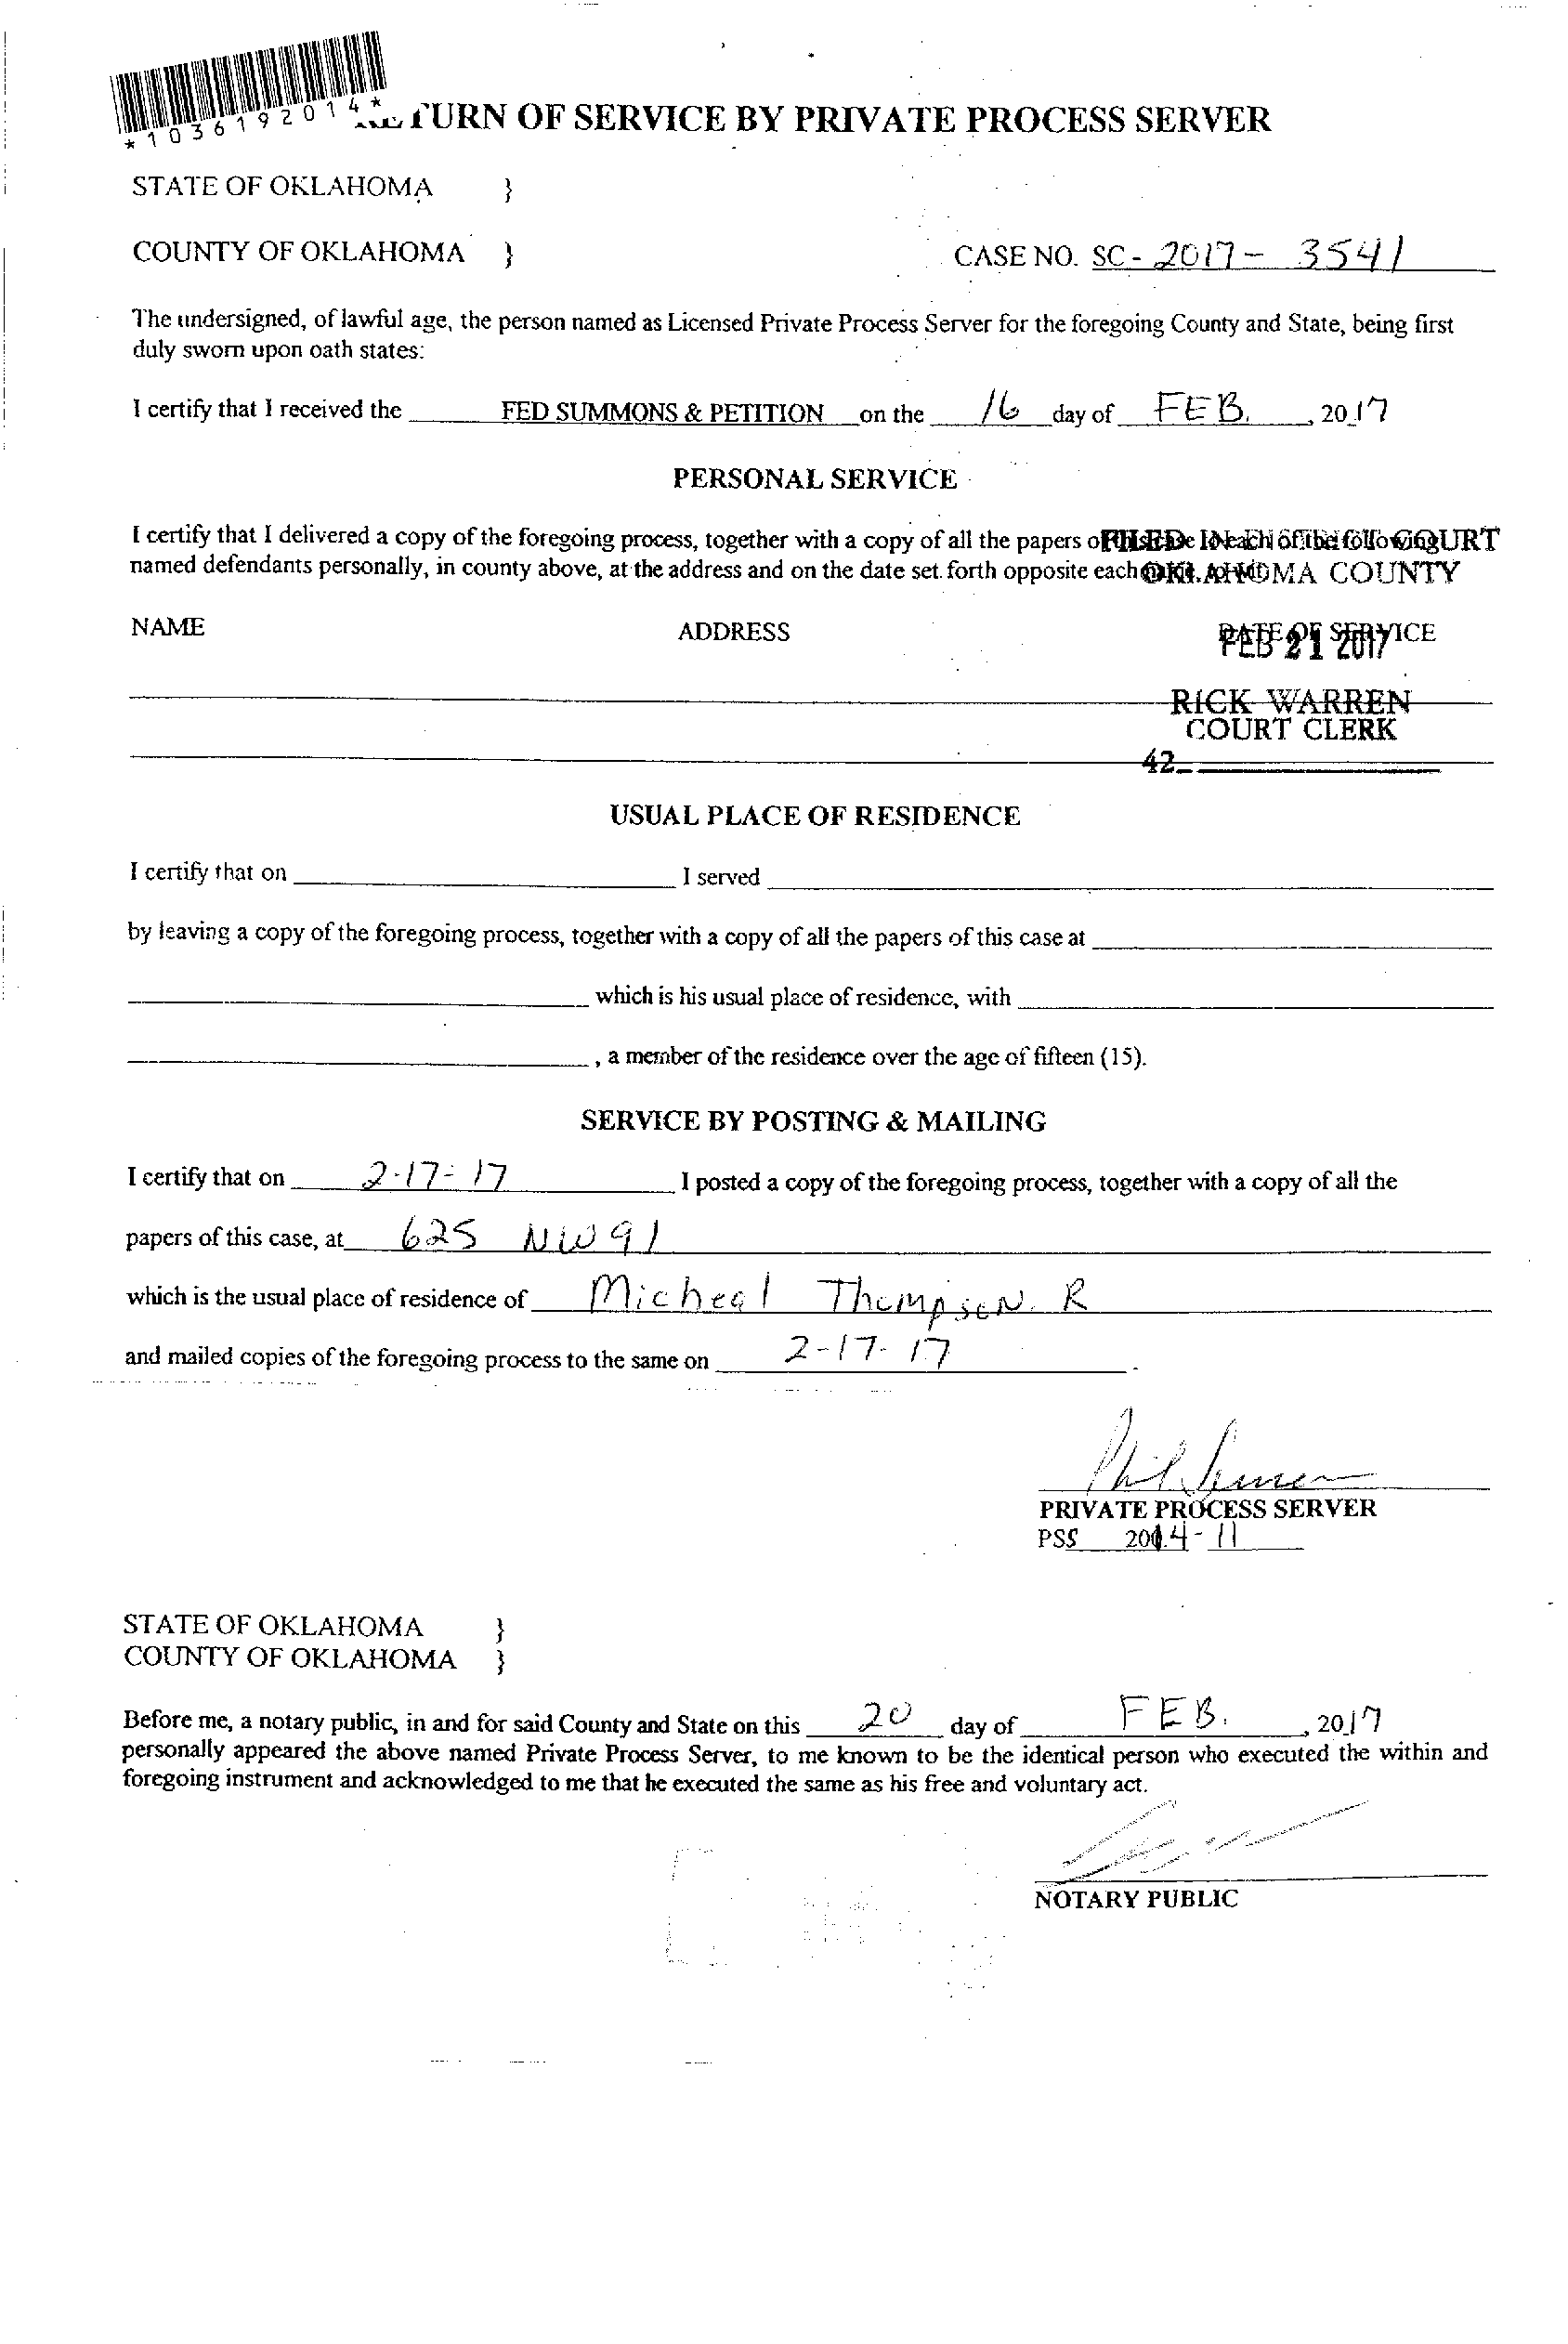 *1036192014*
RETURN OF SERVICE BY PRIVATE PROCESS SERVER
STATE OF OKLAHOMA }
COUNTY OF OKLAHOMA } CASE NO. SC - 2017 - 3541
The undersigned, of lawful age, the person named as Licensed Private Process Server for the foregoing County and State, being first
duly sworn upon oath states:
I certify that I received the FED SUMMONS & PETITION on the 16 day of FEB. , 2017
PERSONAL SERVICE
I certify that I delivered a copy of the foregoing process, together with a copy of all the papers of this case to each of the following
FILED IN COURT
named defendants personally, in county above, at the address and on the date set forth opposite each
OKLAHOMA COUNTY
NAME ADDRESS DATE OF SERVICE
FEB 21 2017
RICK WARREN
COURT CLERK
42
USUAL PLACE OF RESIDENCE
I certify that on I served
by leaving a copy of the foregoing process, together with a copy of all the papers of this case at
which is his usual place of residence, with
, a member of the residence over the age of fifteen (15).
SERVICE BY POSTING & MAILING
I certify that on 2-17-17 I posted a copy of the foregoing process, together with a copy of all the
papers of this case, at 625 NW 91
which is the usual place of residence of Micheal Thompson. R
and mailed copies of the foregoing process to the same on 2-17-17 .
PRIVATE PROCESS SERVER
PSS 2014-11
STATE OF OKLAHOMA }
COUNTY OF OKLAHOMA }
Before me, a notary public, in and for said County and State on this 20 day of FEB. , 2017
personally appeared the above named Private Process Server, to me known to be the identical person who executed the within and
foregoing instrument and acknowledged to me that he executed the same as his free and voluntary act.
NOTARY PUBLIC